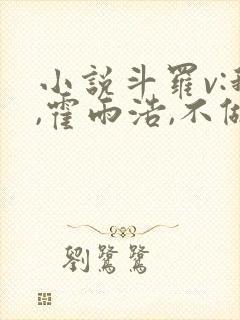 小說斗羅v:
,霍雨浩,不
劉鷺鷺